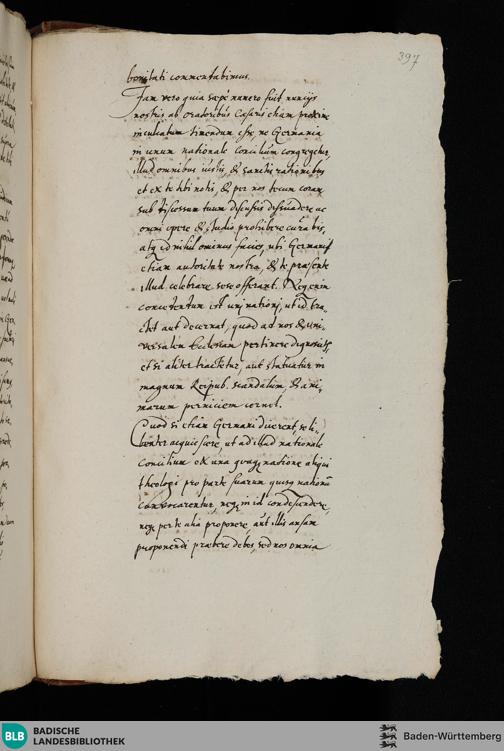 397
bonitati commentabimus.
Jam vero quia sæpe numero fuit nuncijs
nostris ab oratoribus Cæsaris etiam proxime
inculcatum timendum esse, ne Germania
in unum nationale concilium congregetur,
illud omnibus iustis, & sanctis rationibus
et ex te tibi notis, & per nos tecum coram
sub discessum tuum discussis dissuadere ac
omni opere & studio prohibere curabis,
atque id nihilominus facies, ubi Germani
etiam autoritate nostra, & te præsente
illud celebrare sese offerant. Neque enim
conveniens est uni nationi, ut id tra-
ctet aut decernat, quod ad nos & uni-
versalem Ecclesiam pertinere dignoscitur,
et si aliter tractetur, aut statuatur in
magnum Reipub. scandalum, & ani-
marum perniciem cernet.
Quod si etiam Germani dicerent, se li-
benter acquiescere, ut ad illud nationale
concilium ex una quaque natione aliqui
theologi pro parte suarum quisque nationum
convocarentur, neque in id condescendere,
neque per te alia proponere, aut illis ansam
proponendi præbere debes, sed nos omnia
BLB BADISCHE
LANDESBIBLIOTHEK
Baden-Württemberg